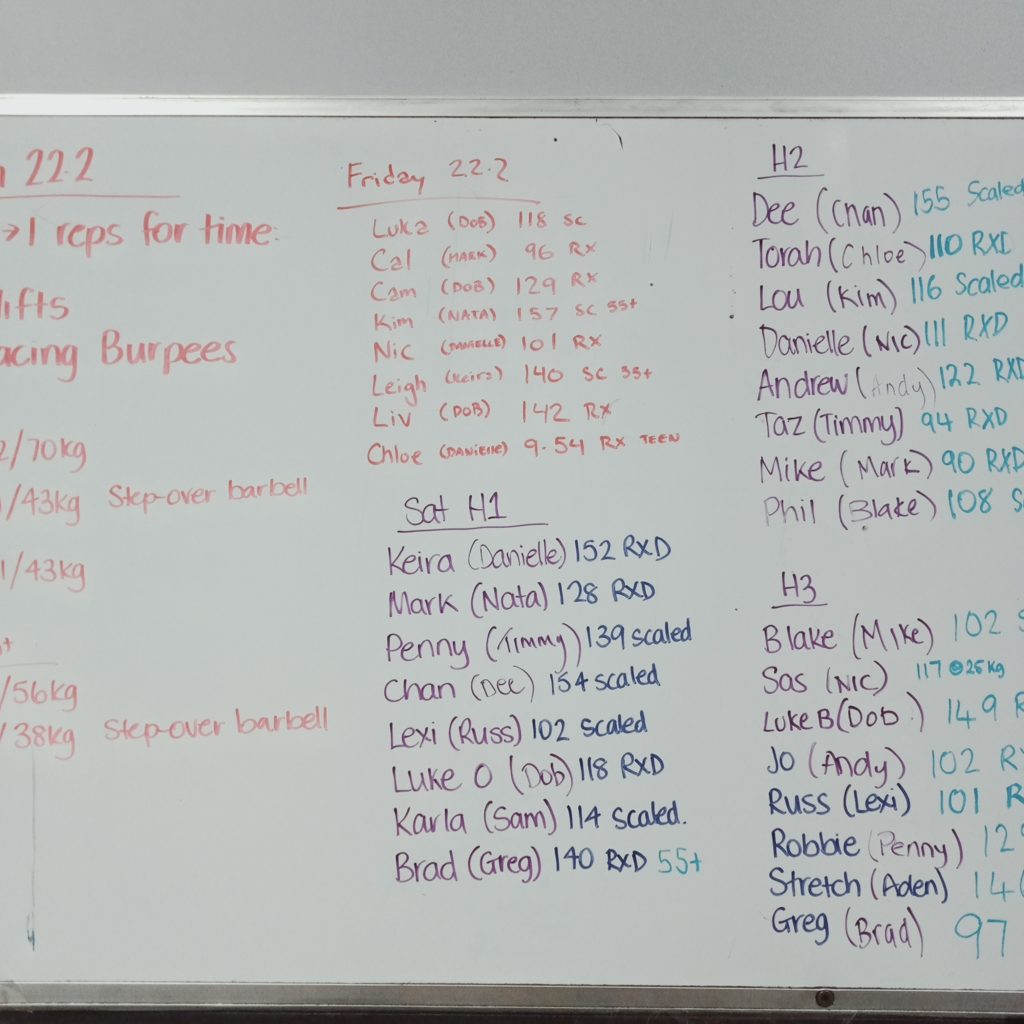 22.2
→1 reps for time:
lifts
acing Burpees
2/70kg
/43kg Step-over barbell
1/43kg
+
/56kg
/38kg Step-over barbell
Friday 22.2
Luka (DOB) 118 SC
Cal (MARK) 96 RX
Cam (DOB) 129 RX
Kim (NATA) 157 SC 55+
Nic (DANIELLE) 101 RX
Leigh (Keira) 140 SC 55+
Liv (DOB) 142 RX
Chloe (DANIELLE) 9.54 RX TEEN
Sat H1
Keira (Danielle) 152 RXD
Mark (Nata) 128 RXD
Penny (Timmy) 139 scaled
Chan (Dee) 154 scaled
Lexi (Russ) 102 Scaled
Luke O (Dob) 118 RXD
Karla (Sam) 114 Scaled.
Brad (Greg) 140 RXD 55+
H2
Dee (Chan) 155 Scaled
Torah (Chloe) 110 RXD
Lou (Kim) 116 Scaled
Danielle (Nic) 111 RXD
Andrew (Andy) 122 RXD
Taz (Timmy) 94 RXD
Mike (Mark) 90 RXD
Phil (Blake) 108 S
H3
Blake (Mike) 102 S
Sas (NIC) 117 @25kg
Luke B (Dob) 149 R
Jo (Andy) 102 RX
Russ (Lexi) 101 R
Robbie (Penny) 12
Stretch (Aden) 14
Greg (Brad) 97